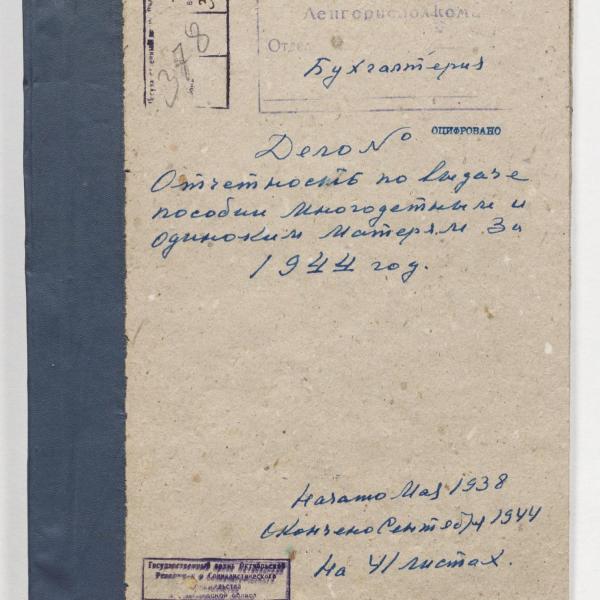 378
Ленгорисполкома
Отдел
Бухгалтерия
ОЦИФРОВАНО
Дело №
Отчетность по выдаче
пособии многодетным и
одиноким матерям за
1944 год.
Начато Май 1938
Окончено Сентябрь 1944
На 41 листах.
Государственный архив Октябрьской
Революции и Социалистического